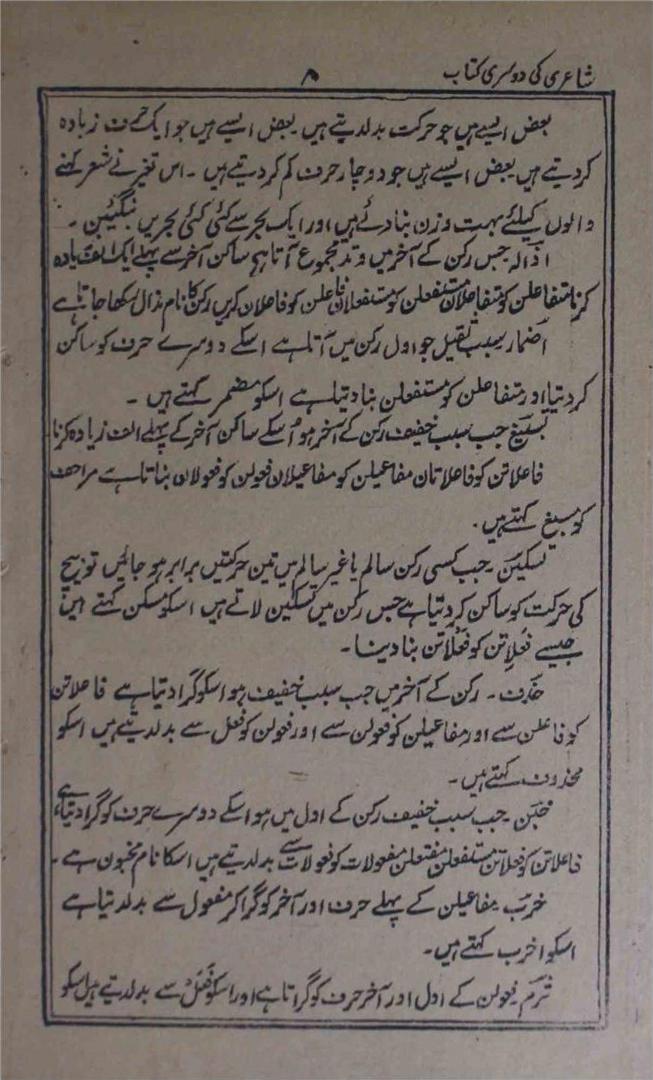 شاعری کی دوسری کتاب ۸
بعض ایسے ہیں جو حرکت بدلدیتے ہیں بعض ایسے ہیں جو ایک حرف زیادہ
کردیتے ہیں بعض ایسے ہیں جو دو چار حرف کم کردیتے ہیں ۔ اس تغیر نے شعر کہنے
والوں کیلئے بہت وزن بنادئے ہیں اور ایک بحر سے کئی کئی بحریں بنگئیں ۔
اذالہ جس رکن کے آخر میں وتد مجموع آتا ہو ساکن آخر سے پہلے ایک الف زیادہ
کرنا متفاعلن کو متفاعلان مستفعلن کو مستفعلان فاعلن کو فاعلان کریں رکن کا نام مذال رکھا جاتا ہے
اضمار سبب ثقیل جو اول رکن میں آتا ہے اسکے دوسرے حرف کو ساکن
کردیتا اور متفاعلن کو مستفعلن بنا دیتا ہے اسکو مضمر کہتے ہیں ۔
تسبیغ جب سبب خفیف رکن کے آخر ہو اسکے ساکن آخر کے پہلے الف زیادہ کرنا
فاعلاتن کو فاعلاتان مفاعیلن کو مفاعیلان فعولن کو فعولان بناتا ہے مزاحف
کو مسبغ کہتے ہیں ۔
تسکین ۔ جب کسی رکن سالم یا غیر سالم میں تین حرکتیں برابر ہو جائیں تو بیچ
کی حرکت کو ساکن کردیتا ہے جس رکن میں تسکین لاتے ہیں اسکو مسکن کہتے ہیں
جیسے فَعِلاتن کو فَعْلاتن بنادینا ۔
حذف ۔ رکن کے آخر میں جب سبب خفیف ہو اسکو گرا دیتا ہے فاعلاتن
کو فاعلن سے اور مفاعیلن کو فعولن سے اور فعولن کو فعل سے بدلدیتے ہیں اسکو
محذوف کہتے ہیں ۔
خبن ۔ جب سبب خفیف رکن کے اول میں ہو اسکے دوسرے حرف کو گرا دیتا ہے
فاعلاتن کو فعلاتن مستفعلن مفتعلن مفعولات کو فعولات سے بدلدیتے ہیں اسکا نام مخبون ہے ۔
خرب ۔ مفاعیلن کے پہلے حرف اور آخر کو گرا کر مفعول سے بدلدیتا ہے
اسکو اخرب کہتے ہیں ۔
ثرم فعولن کے اول اور آخر حرف کو گراتا ہے اور اسکو فَعْلُ سے بدلدیتے ہیں اسکو